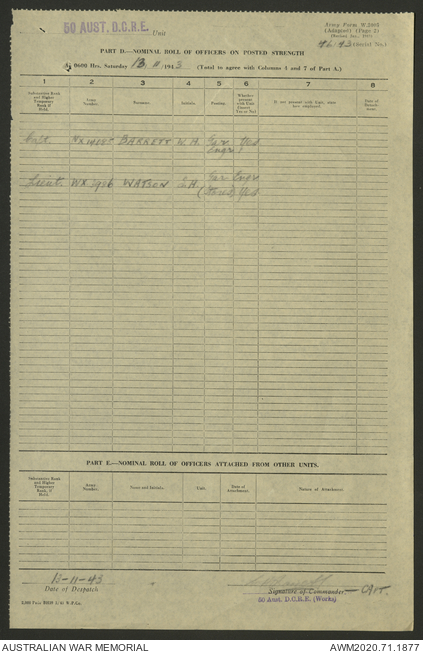 50 AUST. D.C.R.E. Unit
Army Form W.3008
(Adapted) (Page 2)
46/43 (Serial No.)
PART D.—NOMINAL ROLL OF OFFICERS ON POSTED STRENGTH
At 0600 Hrs. Saturday 13 11 1943 (Total to agree with Columns 4 and 7 of Part A.)
1 2 3 4 5 6 7 8
Substantive Rank and Higher Temporary Rank if Held.
Army Number.
Surname.
Initials.
Posting.
Whether present with Unit (insert Yes or No)
If not present with Unit, state how employed.
Date of Embarkation.
Capt. BARRETT W. H. Gar. Engr. Yes
Lieut. WX 1906 WATSON H. Gar Engr Yes
PART E.—NOMINAL ROLL OF OFFICERS ATTACHED FROM OTHER UNITS.
Substantive Rank and Higher Temporary Rank, if Held.
Army Number.
Name and Initials.
Unit.
Date of Attachment.
Nature of Attachment
13-11-43
Date of Despatch
Signature of Commander.— Capt.
50 Aust. D.C.R.E. (Works)
AUSTRALIAN WAR MEMORIAL
AWM2020.71.1877